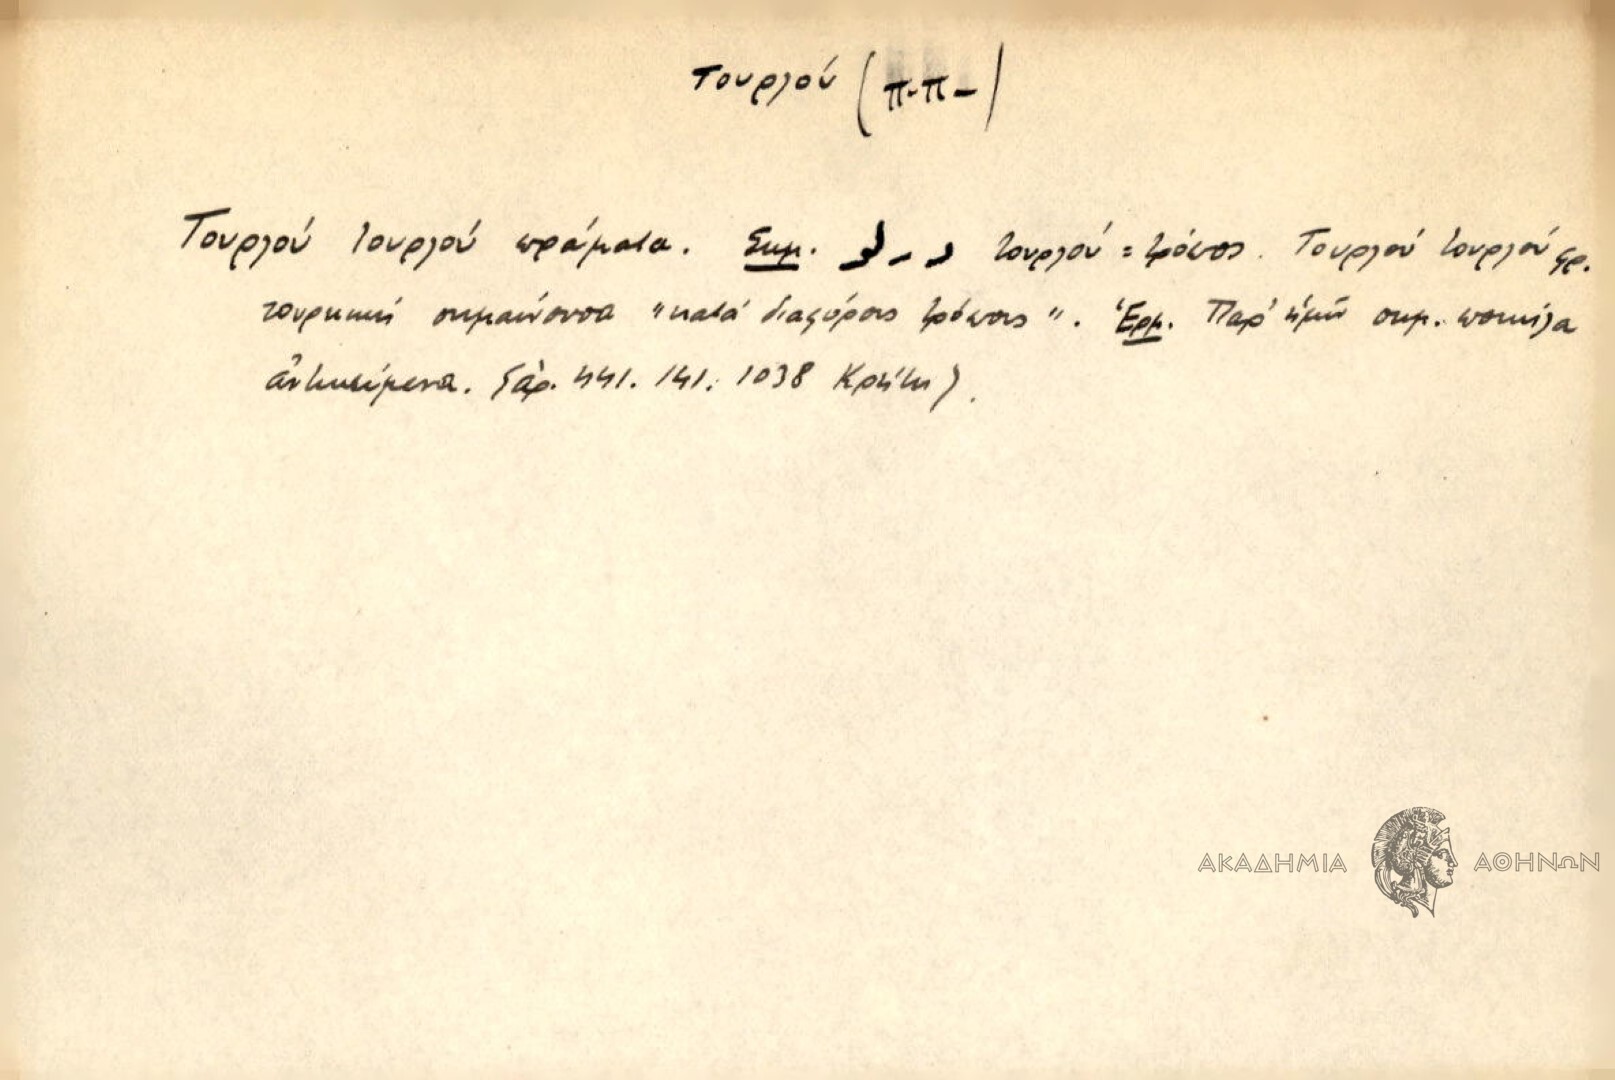 Τουρλού (π-π-)
Τουρλού τουρλού πράματα. Σημ. τουρλού = τρόπος. Τουρλού τουρλού φρ.
τουρκική σημαίνουσα "κατά διαφόρους τρόπους". Ἑρμ. Παρ' ἡμῖν σημ. ποικίλα
ἀντικείμενα. (ἀρ. 441. 141. 1038 Κρήτη).
ΑΚΑΔΗΜΙΑ ΑΘΗΝΩΝ